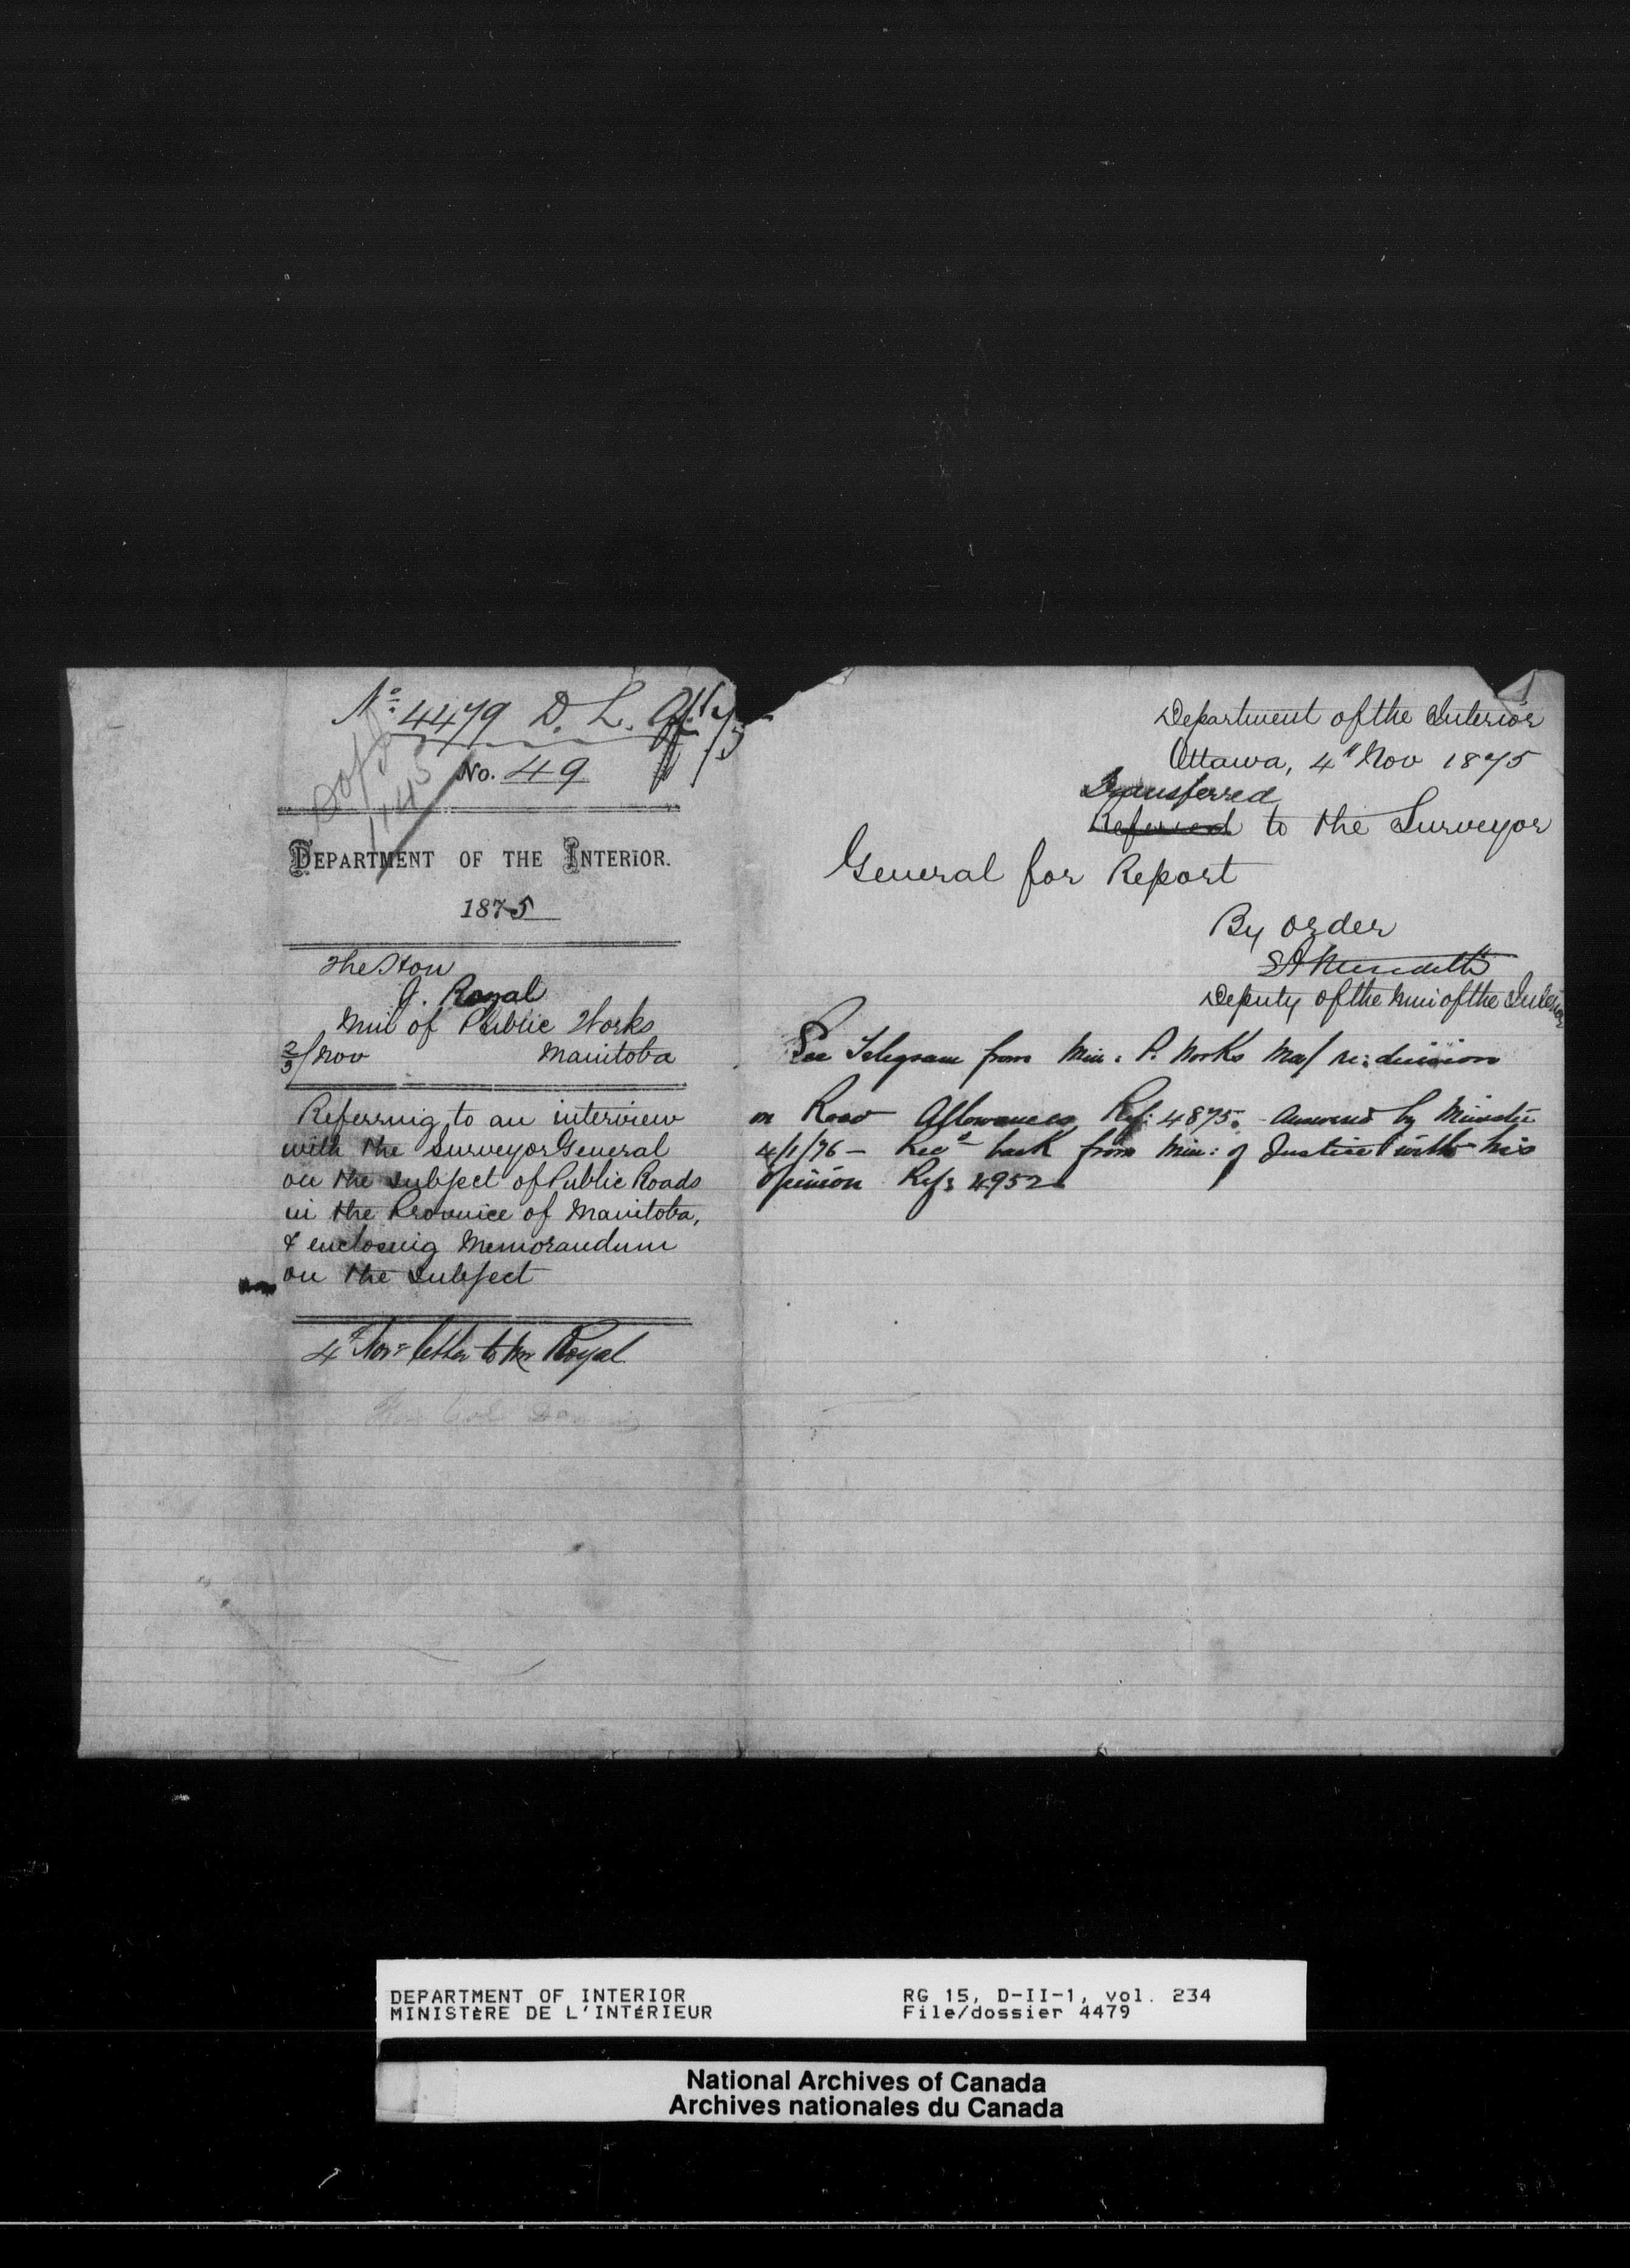 Nº 4479 D. L. Off. 75
No. 49
DEPARTMENT OF THE INTERIOR.
1875
The Hon
J. Royal
Min of Public Works
2/3/Nov Manitoba
Referring to an interview
with the Surveyor General
on the subject of Public Roads
in the Province of Manitoba,
& enclosing Memorandum
on the Subject
4 Nov letter to Mr Royal
Department of the Interior
Ottawa, 4" Nov 1875
Transferred
Referred to the Surveyor
General for Report
By order
E A Meredith
Deputy of the Min of the Interior
See Telegram from Min: P. Works Ma/ re: decision
on Road Allowances, Ref: 4875. Answered by Minister
4/1/76 – Recd back from Min: of Justice with his
opinion Ref: 4952
DEPARTMENT OF INTERIOR RG 15, D-II-1, vol. 234
MINISTÈRE DE L'INTÉRIEUR File/dossier 4479
National Archives of Canada
Archives nationales du Canada